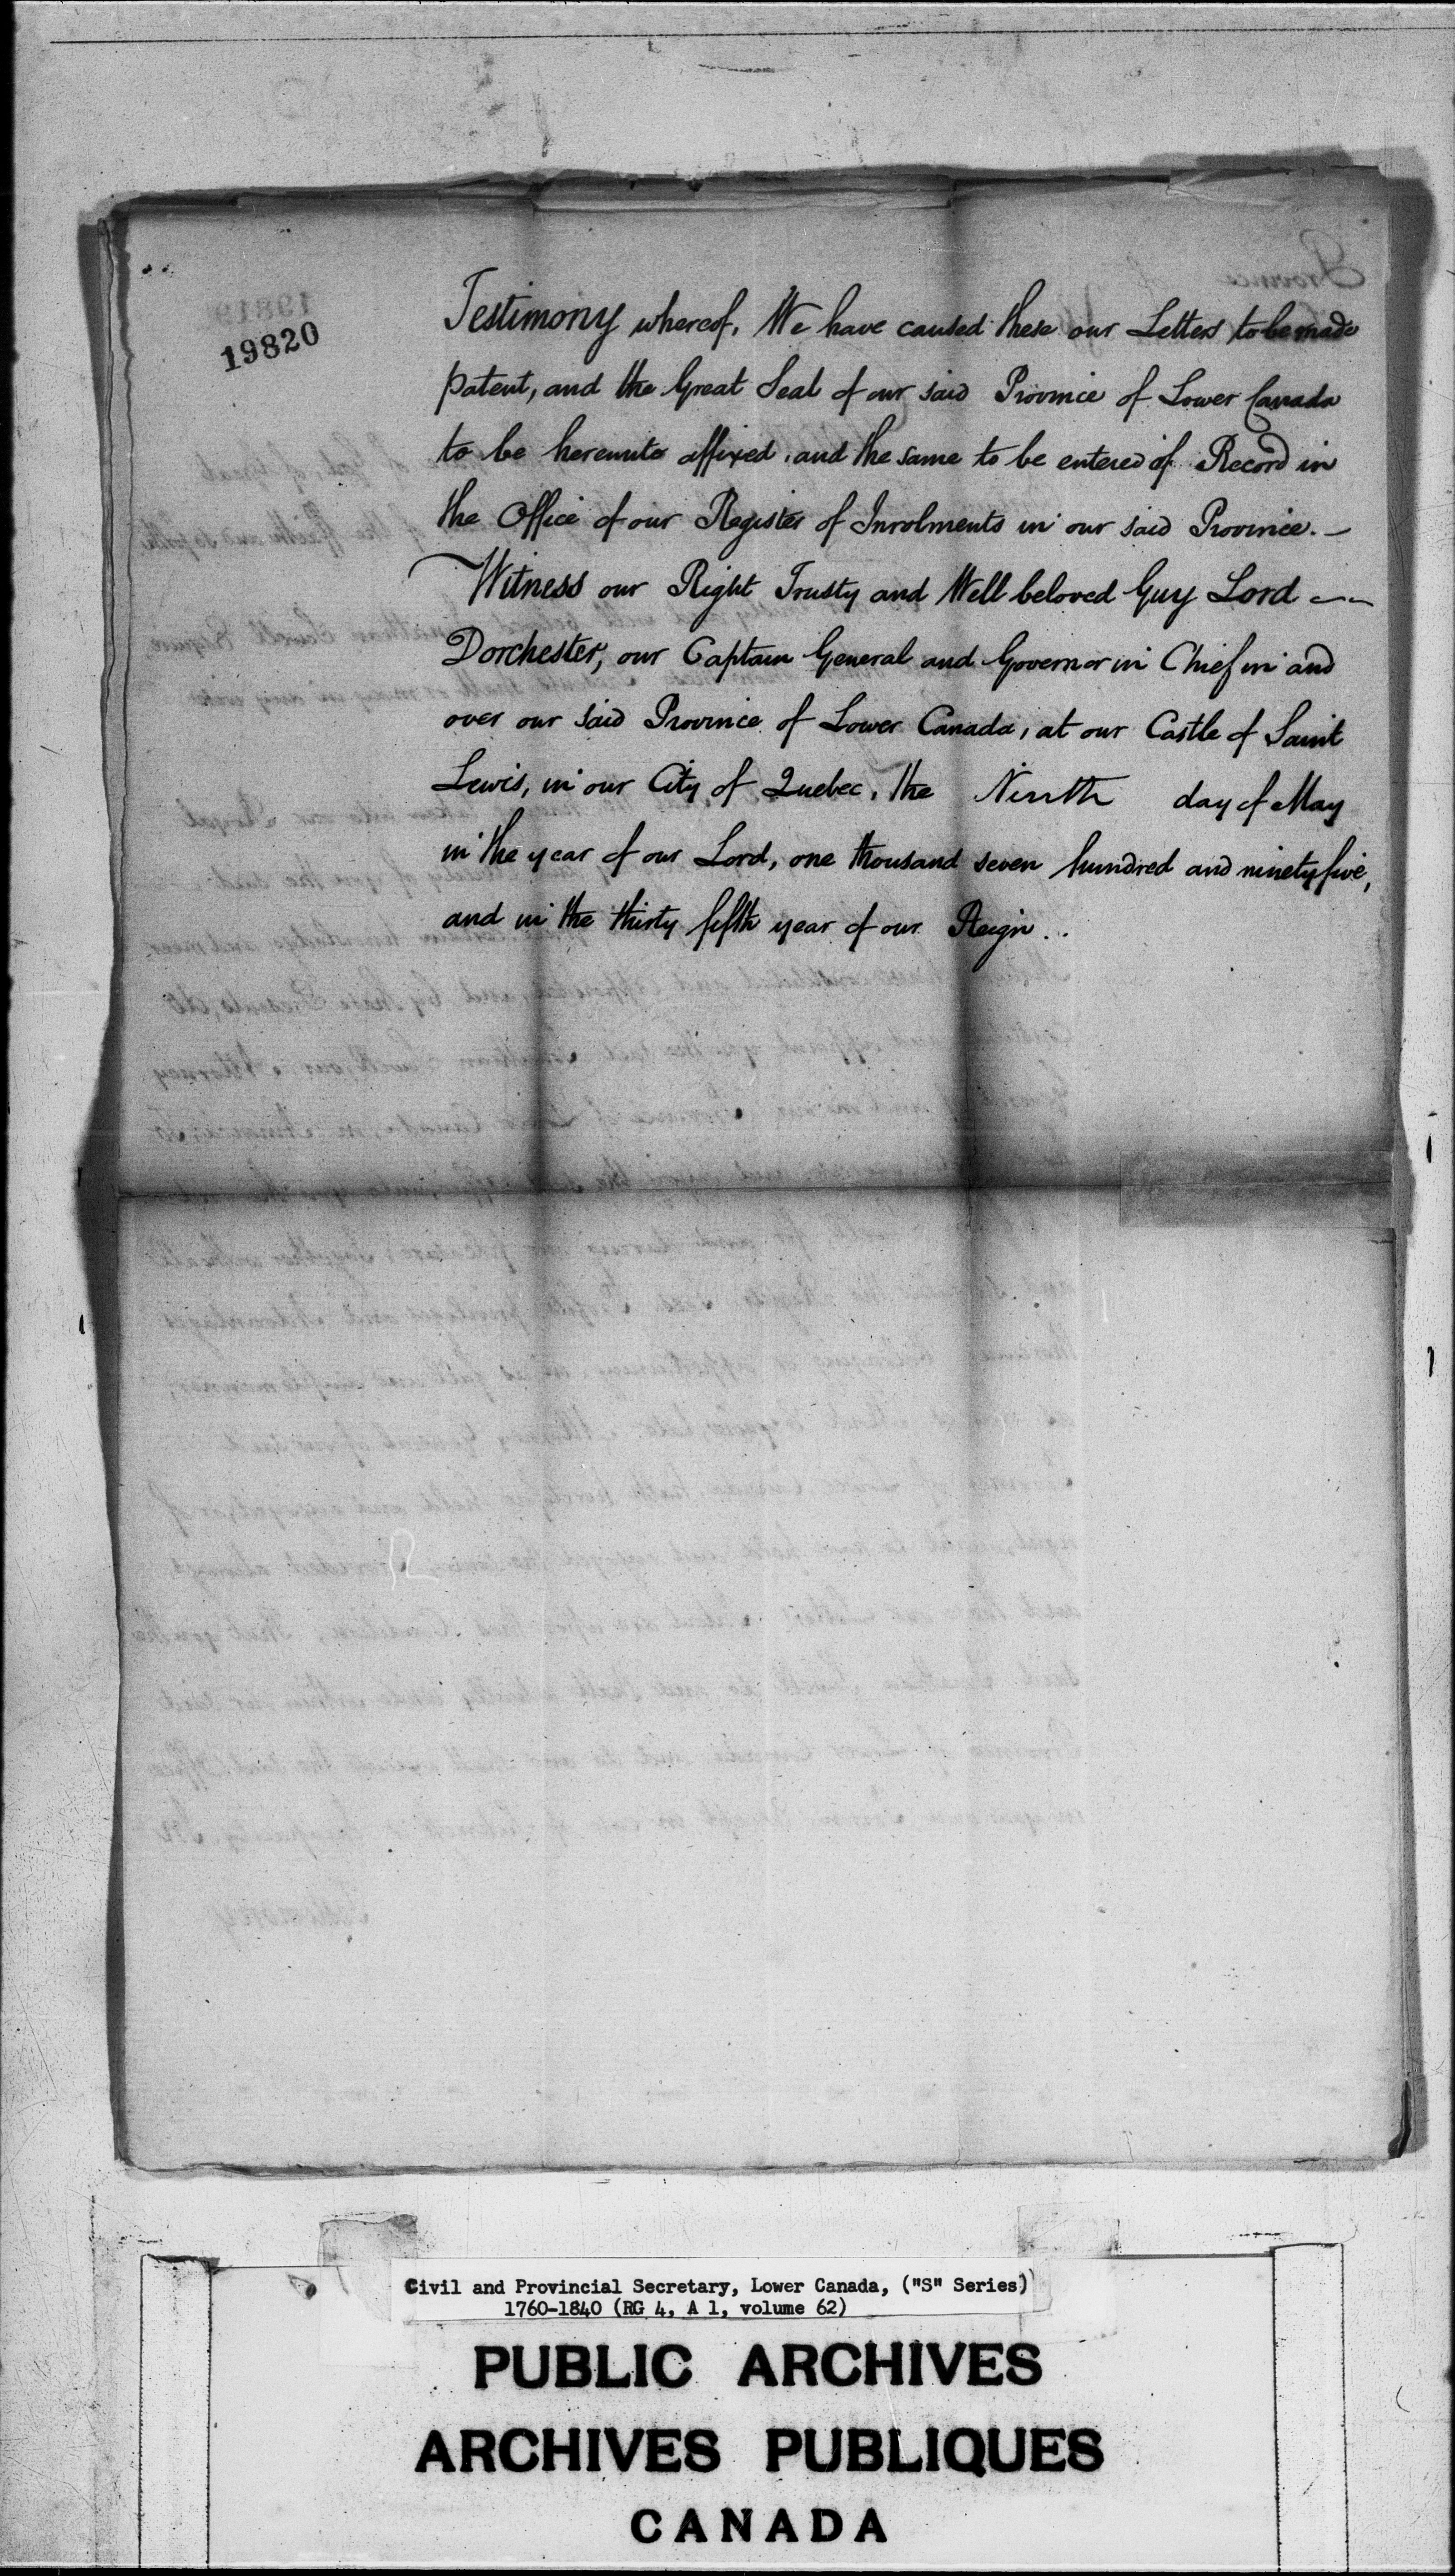 19820
Testimony whereof, We have caused these our Letters to be made
patent, and the Great Seal of our said Province of Lower Canada
to be hereunto affixed, and the same to be entered of Record in
the Office of our Register of Inrolments in our said Province. —
Witness our Right Trusty and Well beloved Guy Lord —
Dorchester, our Captain General and Governor in Chief in and
over our said Province of Lower Canada, at our Castle of Saint
Lewis, in our City of Quebec, the Ninth day of May
in the year of our Lord, one thousand seven hundred and ninety five,
and in the thirty fifth year of our Reign..
Civil and Provincial Secretary, Lower Canada, ("S" Series)
1760-1840 (RG 4, A 1, volume 62)
PUBLIC ARCHIVES
ARCHIVES PUBLIQUES
CANADA